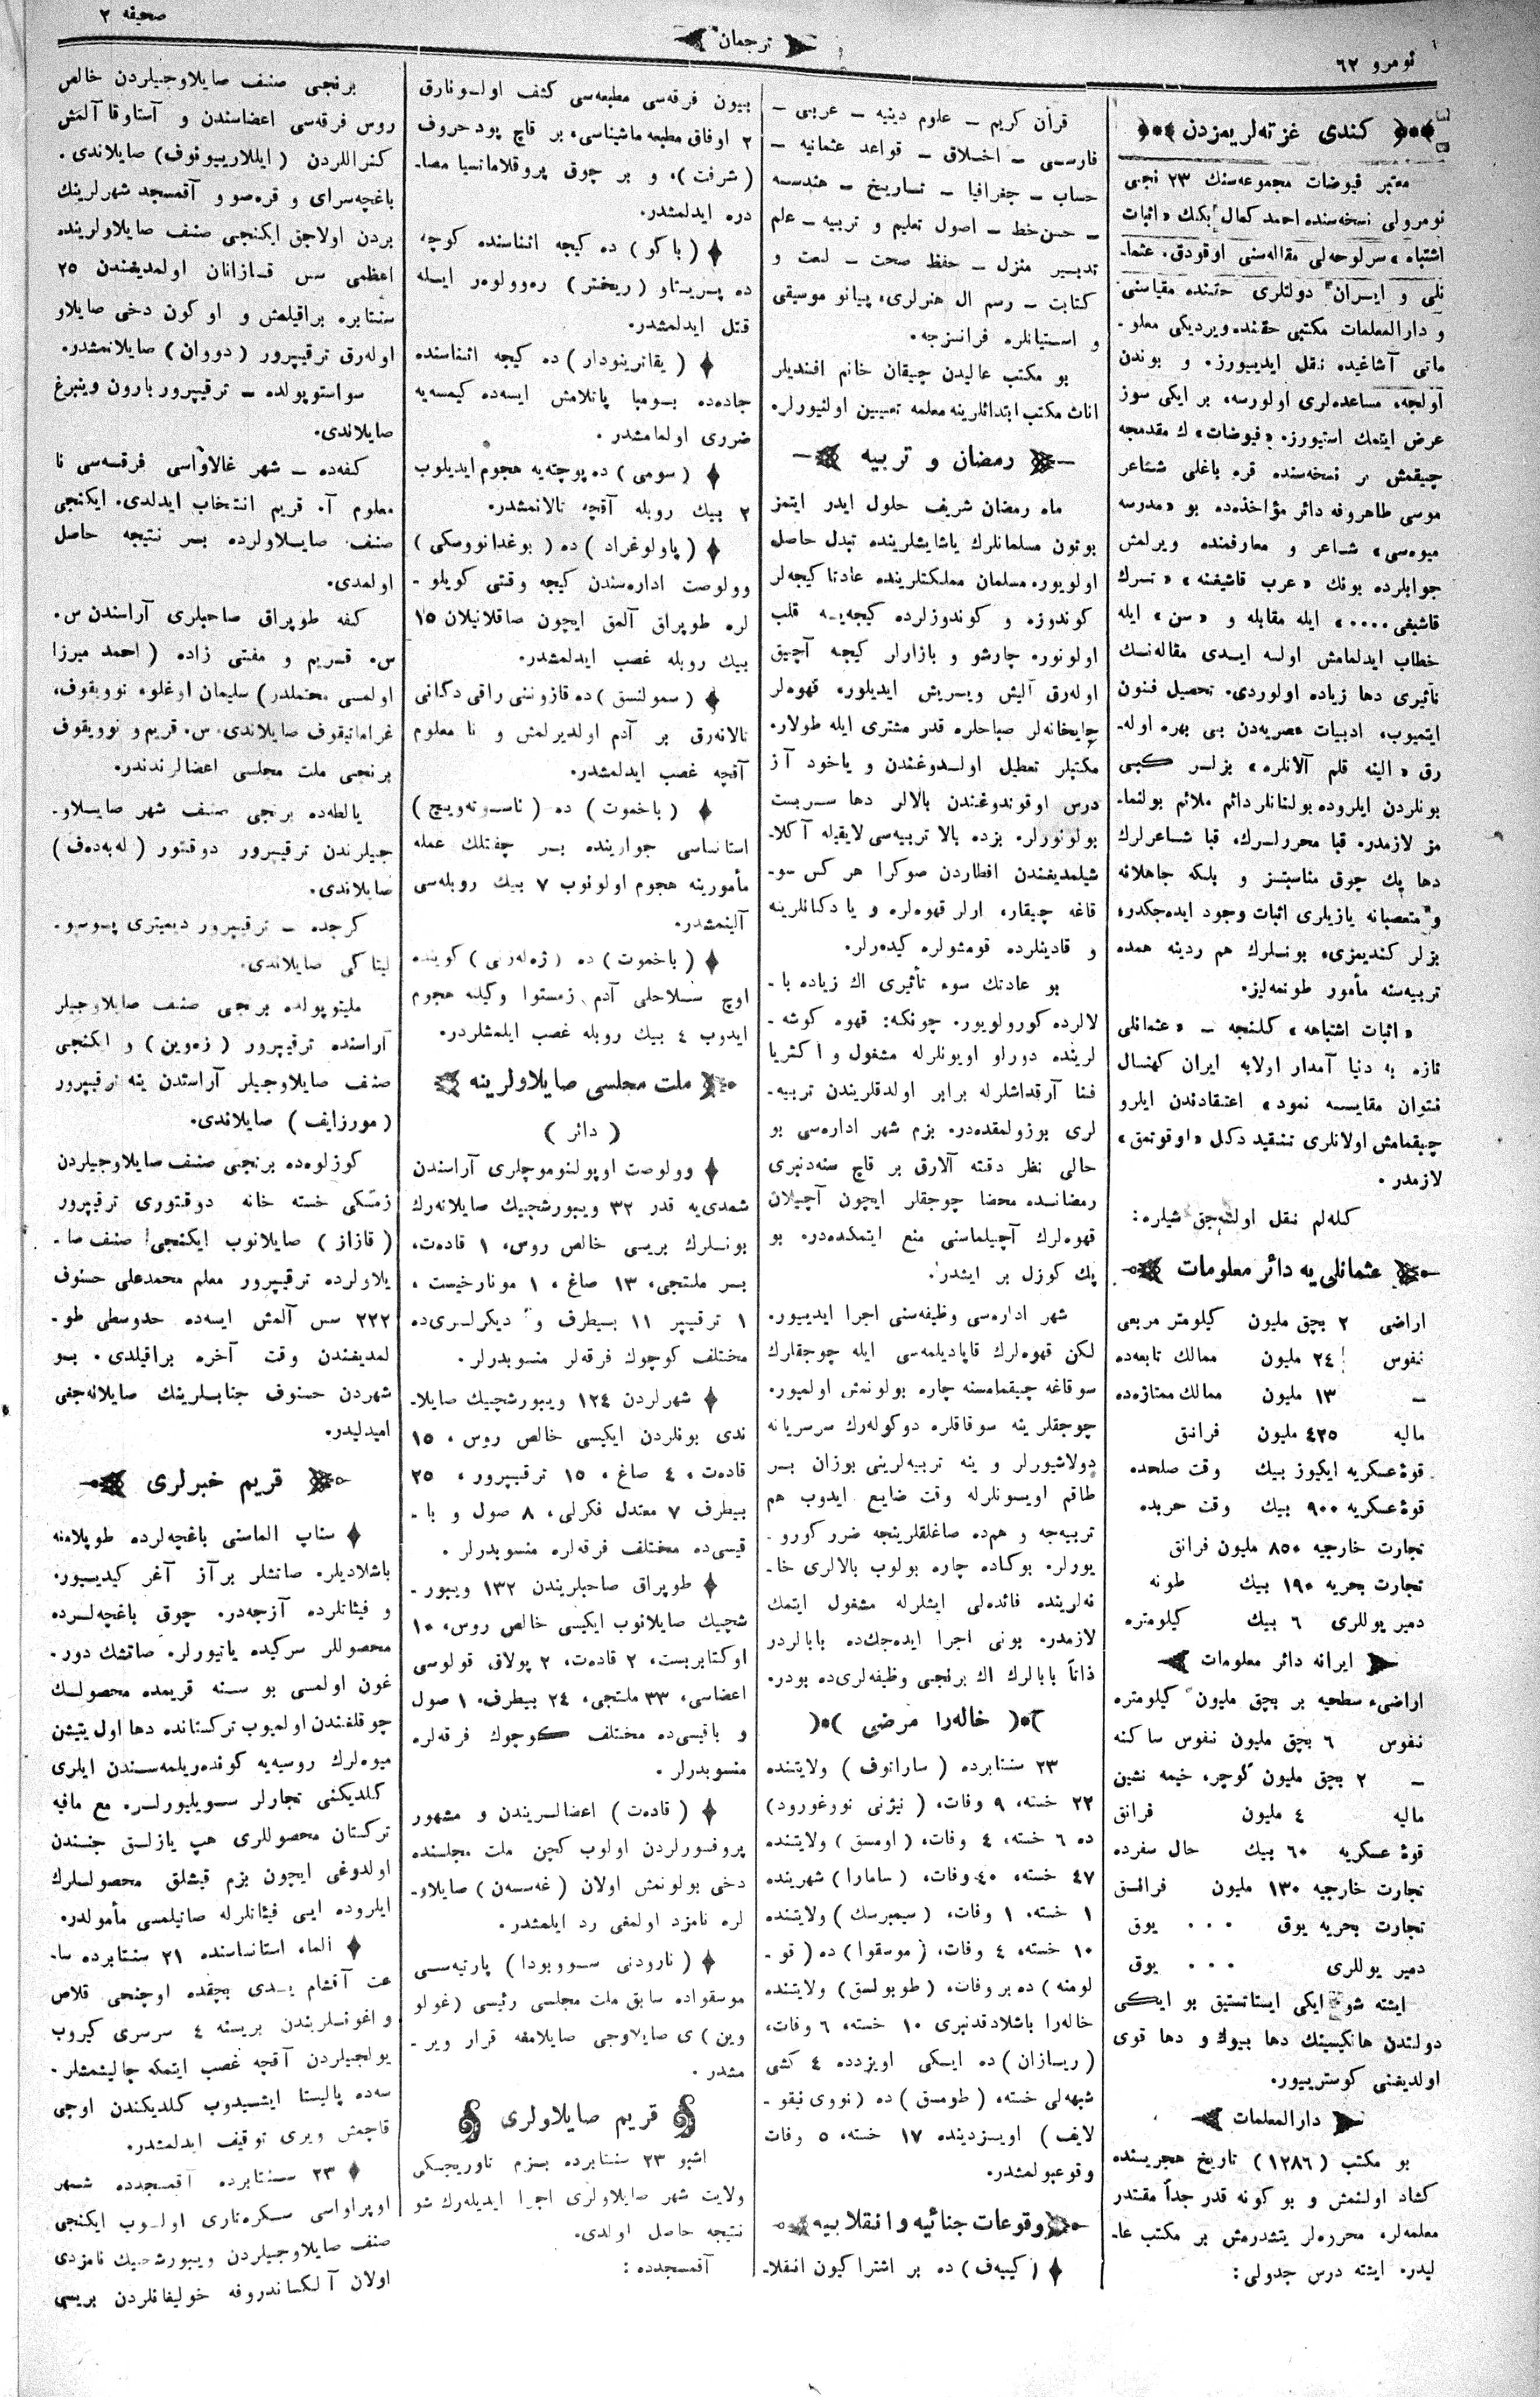 نومرو ٦٢
ترجمان
صحيفه ٢
كندی غزته‌لریمزدن
معتبر فیوضات مجموعه‌سنك ٢٣ نجی
نومرولی نسخه‌سنده احمد كمال بكك «اثبات
اشتباه» سرلوحه‌لی مقاله‌سنی اوقودق. عثما-
نلی و ایران دولتلری حقنده مقیاسنی
و دارالمعلمات مكتبی حقنده ویردیكی معلو-
ماتی آشاغیده نقل ایدییورز. و بوندن
اولجه، مساعده‌لری اولورسه، بر ایكی سوز
عرض ایتمك استیورز. «فیوضات» ك مقدمجه
چیقمش بر نسخه‌سنده قره باغلی شاعر
موسی طاهروفه دائر مؤاخذه‌ده بو «مدرسه
میوه‌سی» شاعر و معارفمنده ویرلمش
جوابلرده بونك «عرب قاشیغنه» «تسرك
قاشیغی....» ایله مقابله و «سن» ایله
خطاب ایدلمامش اولسه ایدی مقاله‌نك
تأثیری دها زیاده اولوردی. تحصیل فنون
ایتمیوب، ادبیات عصریه‌دن بی بهره اوله-
رق «الینه قلم آلانلره» بزلر كبی
بونلردن ایلروده بولنانلر دائم ملائم بولنما-
مز لازمدر. قبا محررلرك، قبا شاعرلرك
دها پك چوق مناسبتسز و بلكه جاهلانه
و متعصبانه یازیلری اثبات وجود ایده‌جكدر؛
بزلر كندیمزی، بونلرك هم ردینه همده
تربیه‌سنه مأمور طونمه‌لیز.
«اثبات اشتباهه» كلنجه – «عثمانلی
تازه به دنیا آمدار اولابه ایران كهنسال
نتوان مقایسه نمود» اعتقادندن ایلرو
چیقمامش اولانلری تنقید دكل «اوقوتمق»
لازمدر.
كله‌لم نقل اولنه‌جق شیلره:
عثمانلی یه دائر معلومات
اراضی ٢ بچق ملیون كیلومتر مربعی
نفوس ٢٤ ملیون ممالك تابعه‌ده
– ١٣ ملیون ممالك ممتازه‌ده
مالیه ٤٢٥ ملیون فرانق
قوۀ عسكریه ایكیوز بیك وقت صلحده
قوۀ عسكریه ٩٠٠ بیك وقت حربده
تجارت خارجیه ٨٥٠ ملیون فرانق
تجارت بحریه ١٩٠ بیك طونه
دمیر یوللری ٦ بیك كیلومتره
ایرانه دائر معلومات
اراضیء سطحیه بر بچق ملیون كیلومتره
نفوس ٦ بچق ملیون نفوس ساكنه
– ٢ بچق ملیون كوچر، خیمه نشین
مالیه ٤ ملیون فرانق
قوۀ عسكریه ٦٠ بیك حال سفرده
تجارت خارجیه ١٣٠ ملیون فرانق
تجارت بحریه یوق ... یوق
دمیر یوللری ... یوق
ایشته شو ایكی ایستاتستیق بو ایكی
دولتدن هانكیسینك دها بیوك و دها قوی
اولدیغنی كوستریبور.
دارالمعلمات
بو مكتب (١٢٨٦) تاریخ هجریسنده
كشاد اولنمش و بو كونه قدر جداً مقتدر
معلمه‌لر، محرره‌لر یتشدرمش بر مكتب عا-
لیدر. ایشته درس جدولی:
قرآن كریم – علوم دینیه – عربی –
فارسی – اخلاق – قواعد عثمانیه –
حساب – جغرافیا – تاریخ – هندسه
– حسن خط – اصول تعلیم و تربیه – علم
تدبیر منزل – حفظ صحت – لغت و
كتابت – رسم ال هنرلری، پیانو موسیقی
و استیانلره فرانسزجه.
بو مكتب عالیدن چیقان خانم افندیلر
اناث مكتب ابتدائلرینه معلمه تعیین اولنیورلر.
رمضان و تربیه
ماه رمضان شریف حلول ایدر ایتمز
بوتون مسلمانلرك یاشایشلرینده تبدل حاصل
اولویور. مسلمان مملكتلرینده عادتا كیجه‌لر
كوندوزه و كوندوزلرده كیجه‌یه قلب
اولونور. چارشو و بازارلر كیجه آچیق
اوله‌رق آلیش ویریش ایدیلور، قهوه‌لر
چایخانه‌لر صباحلره قدر مشتری ایله طولار.
مكتبلر تعطیل اولدوغندن و یاخود آز
درس اوقوندوغندن بالالر دها سربست
بولونورلر. بزده بالا تربیه‌سی لایقیله آكلا-
شیلمدیغندن افطاردن صوكرا هر كس سو-
قاغه چیقار، ارلر قهوه‌لره و یا دكانلرینه
و قادینلرده قومشولره كیده‌رلر.
بو عادتك سوء تأثیری اك زیاده با-
لالرده كورولویور. چونكه: قهوه كوشه-
لرینده دورلو اویونلرله مشغول و اكثریا
فنا آرقداشلرله برابر اولدقلریندن تربیه-
لری بوزولمقده‌در. بزم شهر اداره‌سی بو
حالی نظر دقته آلارق بر قاچ سنه‌دنبری
رمضانده محضا چوجقلر ایچون آچیلان
قهوه‌لرك آچیلماسنی منع ایتمكده‌در. بو
پك كوزل بر ایشدر.
شهر اداره‌سی وظیفه‌سنی اجرا ایدییور.
لكن قهوه‌لرك قاپادیلمه‌سی ایله چوجقلرك
سوقاغه چیقمامسنه چاره بولونمش اولمیور.
چوجقلر ینه سوقاقلره دوكوله‌رك سرسریانه
دولاشیورلر و ینه تربیه‌لرینی بوزان بر
طاقم اویونلرله وقت ضایع ایدوب هم
تربیه‌جه و هم‌ده صاغلقلرینجه ضرر كورو-
یورلر. بوكاده چاره بولوب بالالری خا-
نه‌لرینده فائده‌لی ایشلرله مشغول ایتمك
لازمدر. بونی اجرا ایده‌جك‌ده بابالردر
ذاتاً بابالرك اك برنجی وظیفه‌لری‌ده بودر.
خاله‌را مرضی
٢٣ سنتابرده (ساراتوف) ولایتنده
٢٢ خسته، ٩ وفات، (نیژنی نوورغورود)
ده ٦ خسته، ٤ وفات، (اومسق) ولایتنده
٤٧ خسته، ٤٠ وفات، (سامارا) شهرینده
١ خسته، ١ وفات، (سیمبرسك) ولایتنده
١٠ خسته، ٤ وفات، (موسقوا) ده (قو-
لومنه) ده بر وفات، (طوبولسق) ولایتنده
خاله‌را باشلادقدنبری ١٠ خسته، ٦ وفات،
(ریازان) ده ایكی اویزدده ٤ كشی
شبهه‌لی خسته، (طومسق) ده (نووی نیقو-
لایف) اویزدینده ١٧ خسته، ٥ وفات
وقوعبولمشدر.
وقوعات جنائیه و انقلابیه
(كییه‌ف) ده بر اشتراكیون انقلا-
بیون فرقه‌سی مطبعه‌سی كشف اولونارق
٢ اوفاق مطبعه ماشیناسی، بر قاچ پود حروف
(شرفت)، و بر چوق پروقلاماتسیا مصا-
دره ایدلمشدر.
(باكو) ده كیجه اثناسنده كوچه
ده پریستاو (ریختر) ره‌وولوه‌ر ایله
قتل ایدلمشدر.
(یقاترینودار) ده كیجه اثناسنده
جاده‌ده بومبا پاتلامش ایسه‌ده كیمسه‌یه
ضرری اولمامشدر.
(سومی) ده پوچته‌یه هجوم ایدیلوب
٢ بیك روبله آقچه تالانمشدر.
(پاولوغراد) ده (بوغدانووسكی)
وولوصت اداره‌سندن كیجه وقتی كویلو-
لره طوپراق آلمق ایچون صاقلانیلان ١٥
بیك روبله غصب ایدلمشدر.
(سمولنسق) ده قازوننی راقی دكانی
تالانه‌رق بر آدم اولدیرلمش و نا معلوم
آقچه غصب ایدلمشدر.
(باخموت) ده (ناسونه‌ویچ)
استانساسی جوارینده بر چفتلك عمله
مأمورینه هجوم اولونوب ٧ بیك روبله‌سی
آلینمشدر.
(باخموت) ده كوینده
اوچ سلاحلی آدم زمستوا وكیلنه هجوم
ایدوب ٤ بیك روبله غصب ایلمشلردر.
ملت مجلسی صایلاولرینه
(دائر)
وولوصت اوپولنوموچلری آراسندن
شمدی‌یه قدر ٣٢ ویبورشچیك صایلانه‌رك
بونلرك بریسی خالص روس، ١ قاده‌ت،
بر ملتجی، ١٣ صاغ، ١ مونارخیست،
١ ترقیپر ١١ بیطرف و دیكرلری‌ده
مختلف كوچوك فرقه‌لر منسوبدرلر.
شهرلردن ١٢٤ ویبورشچیك صایلا-
ندی بونلردن ایكیسی خالص روس، ١٥
قاده‌ت، ٤ صاغ، ١٥ ترقیپرور، ٢٥
بیطرف ٧ معتدل فكرلی، ٨ صول و با-
قیسی‌ده مختلف فرقه‌لره منسوبدرلر.
طوپراق صاحبلریندن ١٣٢ ویبور-
شچیك صایلانوب ایكیسی خالص روس، ١٠
اوكتابریست، ٢ قاده‌ت، ٢ پولاق قولوسی
اعضاسی، ٣٣ ملتجی، ٢٤ بیطرف، ١ صول
و باقیسی‌ده مختلف كوچوك فرقه‌لره
منسوبدرلر.
(قاده‌ت) اعضالریندن و مشهور
پروفسورلردن اولوب كچن ملت مجلسنده
دخی بولونمش اولان (غه‌سسه‌ن) صایلاو-
لره نامزد اولمغی رد ایلمشدر.
(نارودنی سووبودا) پارتیه‌سی
موسقواده سابق ملت مجلسی رئیسی (غولو
وین) ی صایلاوجی صایلامغه قرار ویر-
مشدر.
قریم صایلاولری
اشبو ٢٣ سنتابرده بزم تاوریچسكی
ولایت شهر صایلاولری اجرا ایدیله‌رك شو
نتیجه حاصل اولدی.
آقمسجدده:
برنجی صنف صایلاوجیلردن خالص
روس فرقه‌سی اعضاسندن و آستاوقا آلمش
كنراللردن (ایللاریونوف) صایلاندی.
باغچه‌سرای و قره‌صوو و آقمسجد شهرلرینك
بردن اولاجق ایكنجی صنف صایلاولرینده
اعظمی سس قازانان اولمدیغندن ٢٥
سنتابره براقیلمش و او كون دخی صایلاو
اوله‌رق ترقیپرور (دووان) صایلانمشدر.
سواستوپولده – ترقیپرور بارون وینبرغ
صایلاندی.
كفه‌ده – شهر غالاواسی فرقه‌سی نا
معلوم آ. قریم انتخاب ایدلدی. ایكنجی
صنف صایلاولرده بر نتیجه حاصل
اولمدی.
كفه طوپراق صاحبلری آراسندن س.
س. قریم و مفتی زاده (احمد میرزا
اولمسی محتملدر) سلیمان اوغلو، نوویقوف،
غراماتیقوف صایلاندی. س. قریم و نوویقوف
برنجی ملت مجلسی اعضالرندندر.
یالطه‌ده برنجی صنف شهر صایلاو-
جیلرندن ترقیپرور دوقتور (له‌به‌ده‌ف)
صایلاندی.
كرچده – ترقیپرور دیمیتری
صایلاندی.
ملیتوپولده برنجی صنف صایلاوجیلر
آراسنده ترقیپرور (زه‌وین) و ایكنجی
صنف صایلاوجیلر آراسندن ینه ترقیپرور
(مورزایف) صایلاندی.
كوزلوه‌ده برنجی صنف صایلاوجیلردن
زمسكی خسته خانه دوقتوری ترقیپرور
(قازاز) صایلانوب ایكنجی صنف صا-
یلاولرده ترقیپرور معلم محمدعلی حسنوف
٢٢٢ سس آلمش ایسه‌ده حدوسطی طو-
لمدیغندن وقت آخره براقیلدی. بو
شهردن حسنوف جنابلرینك صایلانه‌جغی
امیدلیدر.
قریم خبرلری
سناپ الماسنی باغچه‌لرده طوپلامنه
باشلادیلر. صاتشلر بر آز آغر كیدییور.
و فیئاتلرده آزجه‌در. چوق باغچه‌لرده
محصوللر سركیده یاتیورلر. صاتشك دور-
غون اولمسی بو سنه قریمده محصولك
چوقلغندن اولمیوب تركستانده دها اول یتیشن
میوه‌لرك روسیه‌یه كوندریلمه‌سندن ایلری
كلدیكنی تجارلر سویلیورلر. مع مافیه
تركستان محصوللری هپ یازلق جنسندن
اولدوغی ایچون بزم قیشلق محصوللرك
ایلروده ایی فیئاتلرله صاتیلمسی مأمولدر.
الما، استانساسنده ٢١ سنتابرده سا-
عت آقشام یدی بچقده اوچنجی قلاص
واغونلریندن بریسنه ٤ سرسری كیروب
یولجیلردن آقچه غصب ایتمكه چالیشمشلر-
سه‌ده پالیسا ایشیدوب كلدیكندن اوچی
قاچمش و بری توقیف ایدلمشدر.
٢٣ سنتابرده آقمسجدده شهر
اوپراواسی سكره‌تاری اولوب ایكنجی
صنف صایلاوجیلردن ویبورشچیك نامزدی
اولان آلكساندروفه خولیغانلردن بریسی